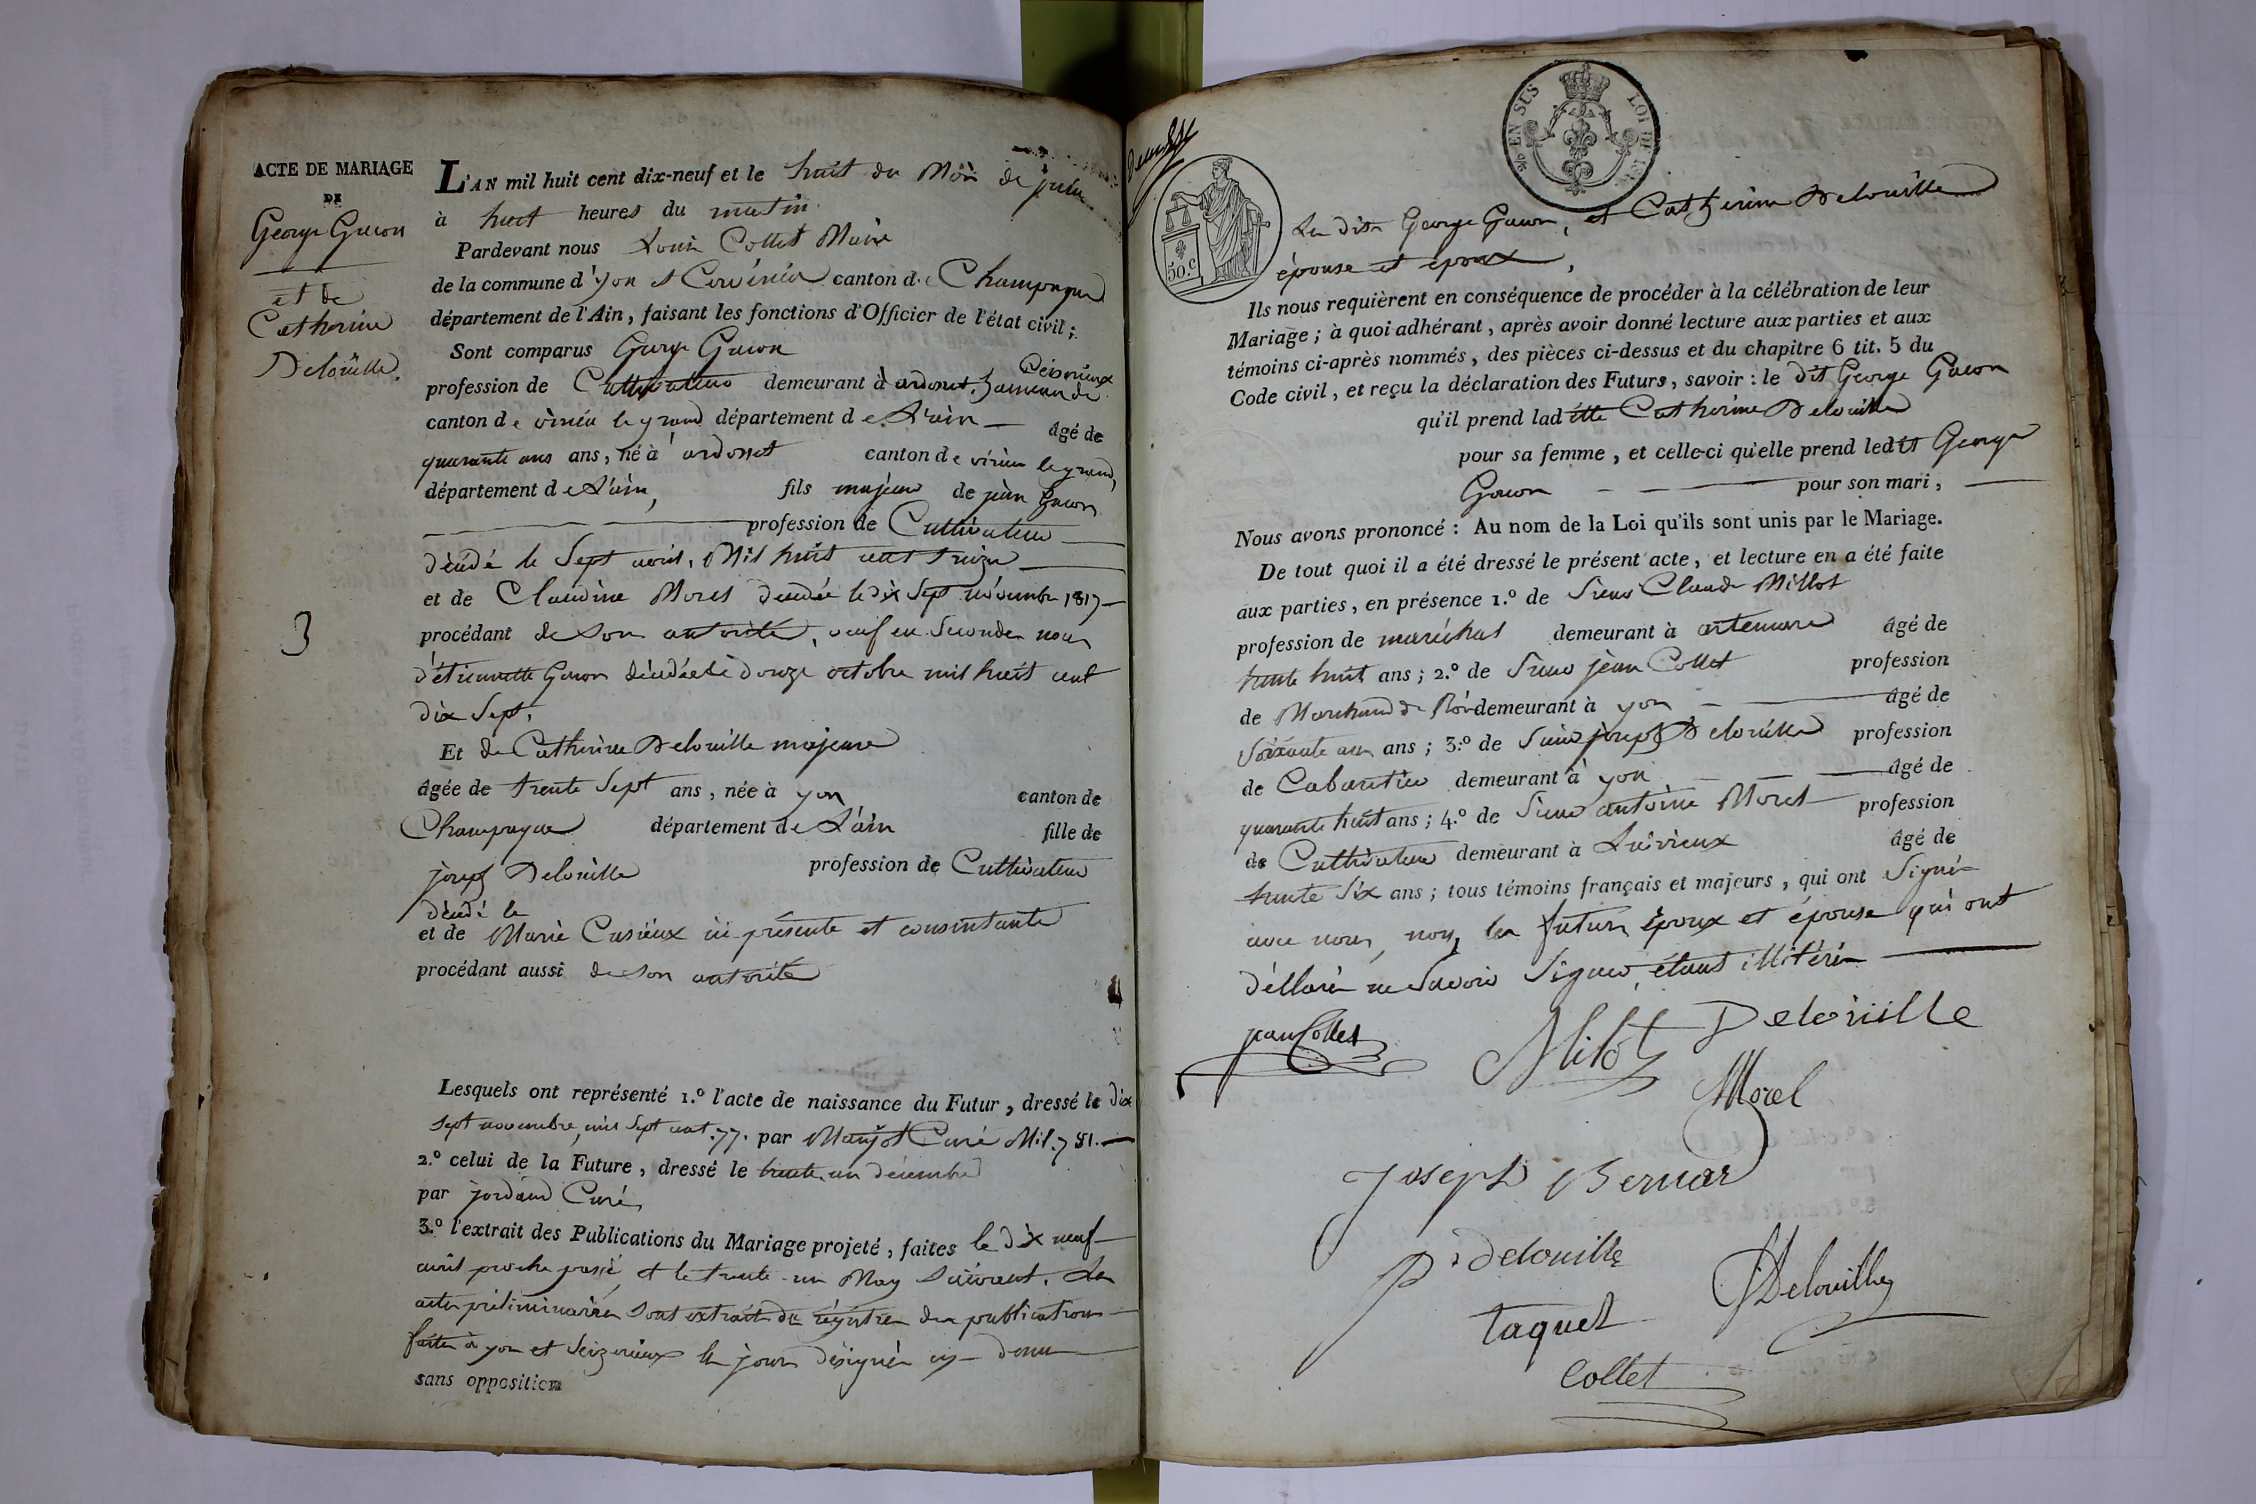 ACTE DE MARIAGE
DE
George Gacon
et de
Catherine
Delouille.
3
L'AN mil huit cent dix-neuf et le huit du Mois de juin
à huit heures du matin.
Pardevant nous Louis Collet Maire
de la commune d'yon canton de Champagne
département de l'Ain, faisant les fonctions d'Officier de l'état civil;
Sont comparus George Gacon
profession de Cultivateur demeurant à ardosset hameau de
canton de virieu le grand département de L'ain âgé de
quarante ans ans, né à ardosset canton de virieu le grand,
département de L'ain, fils majeur de jean Gacon
profession de Cultivateur
décédé le Sept avril, Mil huit cent treize
et de Claudine Morel décédée le dix Sept novembre 1817
procédant de Son autorité, veuf en Secondes noces
d'étiennette Gacon décédée le douze octobre mil huit cent
dix Sept.
Et de Catherine Delouille majeure
âgée de trente Sept ans, née à yon canton de
Champagne département de L'ain fille de
joseph Delouille profession de Cultivateur
décédé le
et de Marie Cusieux ici présente et consentante
procédant aussi de Son autorité
Lesquels ont représenté 1.º l'acte de naissance du Futur, dressé le dix
sept novembre, mil Sept cent .77. par Curé Mil.781.
2.º celui de la Future, dressé le trente un décembre
par jordand Curé
3.º l'extrait des Publications du Mariage projeté, faites le dix neuf
avril proche passé, et le trente-un May Suivant. Les
actes préliminaires Sont extraits des régistres des publications
faites à yon et les jours désignés cy-dessus
sans opposition
% EN SUS LOI DE
50.c
Les dits George Gacon, et Catherine Delouille
épouse et époux,
Ils nous requièrent en conséquence de procéder à la célébration de leur
Mariage; à quoi adhérant, après avoir donné lecture aux parties et aux
témoins ci-après nommés, des pièces ci-dessus et du chapitre 6 tit. 5 du
Code civil, et reçu la déclaration des Futurs, savoir: le dit George Gacon
qu'il prend ladette Catherine Delouille
pour sa femme, et celle-ci qu'elle prend ledit George
Gacon pour son mari,
Nous avons prononcé: Au nom de la Loi qu'ils sont unis par le Mariage.
De tout quoi il a été dressé le présent acte, et lecture en a été faite
aux parties, en présence 1.º de Sieur Claude Millot
profession de maréchal demeurant à artemare âgé de
trente huit ans; 2.º de Sieur jean Collet profession
de Marchand de demeurant à yon âgé de
Soixante ans ans; 3.º de Sieur joseph Delouille profession
de Cabaretier demeurant à yon âgé de
quarante huit ans; 4.º de Sieur antoine Morel profession
de Cultivateur demeurant à Luirieux âgé de
trente Six ans; tous témoins français et majeurs, qui ont Signé
avec nous, non les futurs époux et épouse qui ont
déclaré ne Savoir Signer, étant illitérés
jean Collet
Milot
Delouille
Morel
Joseph Bernard
P. delouille
JDelouille
taquet
Collet